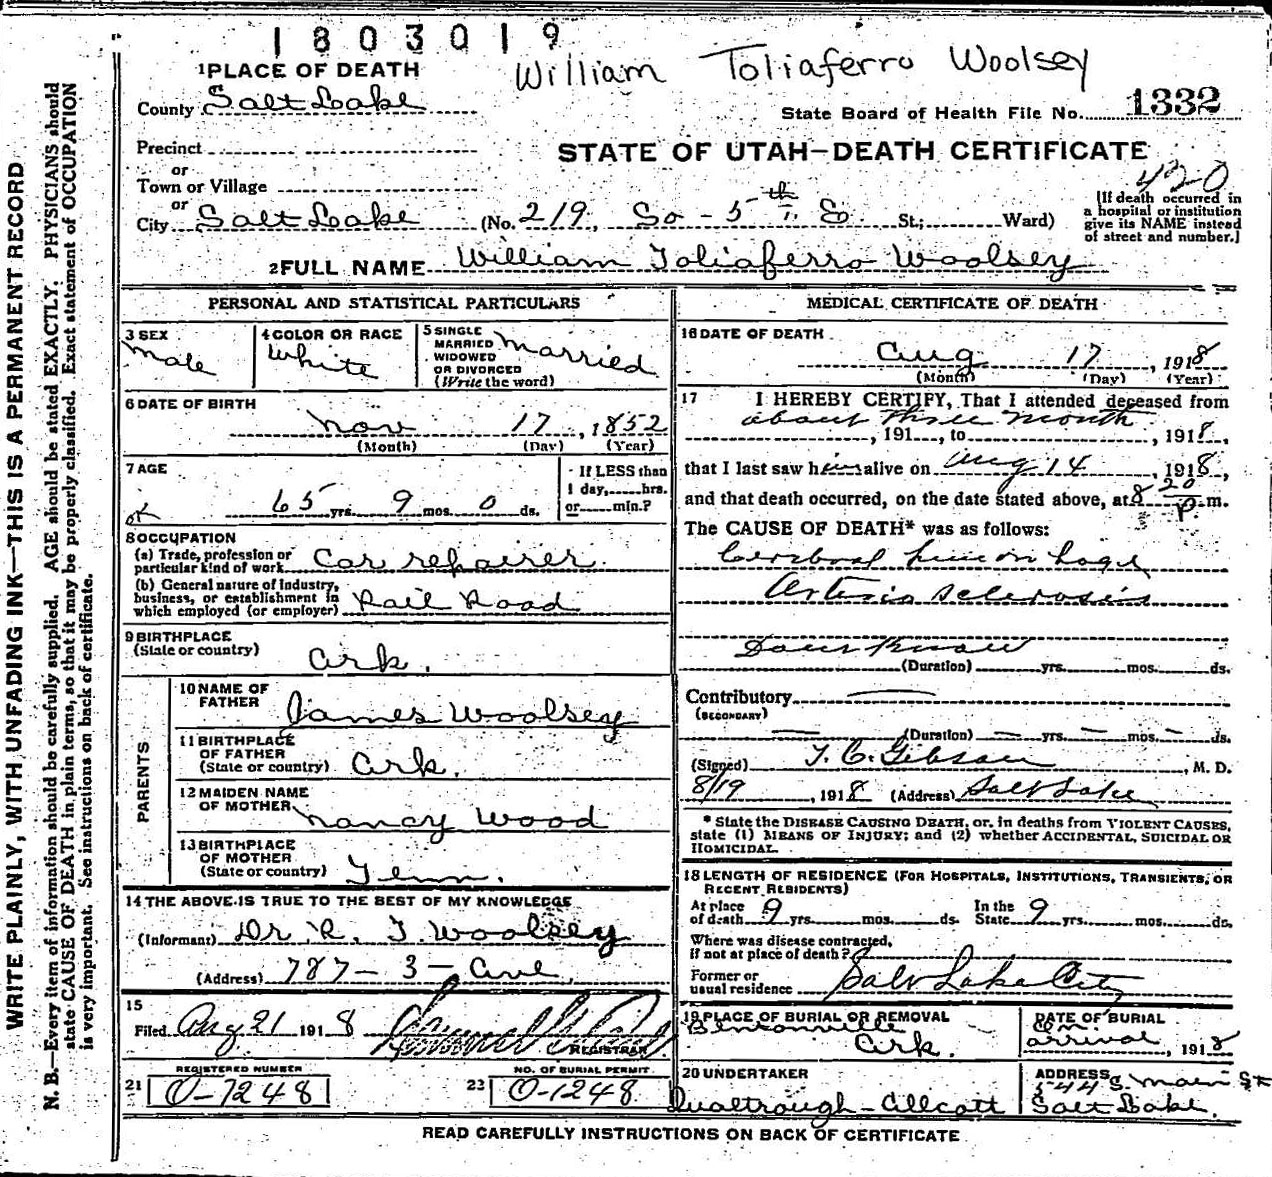 1803019
William Toliaferro Woolsey
1 PLACE OF DEATH
County Salt Lake
State Board of Health File No. 1332
Precinct
or
Town or Village
or
City Salt Lake (No. 219, So - 5th E St; Ward)
STATE OF UTAH—DEATH CERTIFICATE
420
[If death occurred in a hospital or institution give its NAME instead of street and number.]
2 FULL NAME William Toliaferro Woolsey
PERSONAL AND STATISTICAL PARTICULARS
3 SEX
Male
4 COLOR OR RACE
White
5 SINGLE MARRIED WIDOWED OR DIVORCED (Write the word)
Married
6 DATE OF BIRTH
Nov 17, 1852
(Month) (Day) (Year)
7 AGE
65 yrs. 9 mos. 0 ds.
If LESS than 1 day, hrs. or min.?
ok
8 OCCUPATION
(a) Trade, profession or particular kind of work Car repairer
(b) General nature of industry, business, or establishment in which employed (or employer) Rail Road
9 BIRTHPLACE (State or country)
Ark.
PARENTS
10 NAME OF FATHER James Woolsey
11 BIRTHPLACE OF FATHER (State or country) Ark.
12 MAIDEN NAME OF MOTHER Nancy Wood
13 BIRTHPLACE OF MOTHER (State or country) Tenn.
14 THE ABOVE IS TRUE TO THE BEST OF MY KNOWLEDGE
(Informant) Dr R. T. Woolsey
(Address) 787 - 3 - Ave.
15
Filed Aug 21 1918
REGISTRAR
REGISTERED NUMBER
21 O-1248
NO. OF BURIAL PERMIT
22 O-1248
MEDICAL CERTIFICATE OF DEATH
16 DATE OF DEATH
Aug 17, 1918
(Month) (Day) (Year)
17 I HEREBY CERTIFY, That I attended deceased from
about three month
, 191 , to , 1918,
that I last saw him alive on Aug 14, 1918,
and that death occurred, on the date stated above, at 8 20 P. m.
The CAUSE OF DEATH* was as follows:
Cerebral
Arterio Sclerosis
(Duration) yrs. mos. ds.
Contributory
(SECONDARY)
(Duration) yrs. mos. ds.
(Signed) T. C. Gibson, M. D.
8/19, 1918 (Address) Salt Lake
* State the DISEASE CAUSING DEATH, or, in deaths from VIOLENT CAUSES, state (1) MEANS OF INJURY; and (2) whether ACCIDENTAL, SUICIDAL OR HOMICIDAL.
18 LENGTH OF RESIDENCE (FOR HOSPITALS, INSTITUTIONS, TRANSIENTS, OR RECENT RESIDENTS)
At place of death 9 yrs. mos. ds. In the State 9 yrs. mos. ds.
Where was disease contracted, if not at place of death?
Former or usual residence Salt Lake City
19 PLACE OF BURIAL OR REMOVAL
Bentonville
Ark.
DATE OF BURIAL
On arrival, 1918
20 UNDERTAKER
Qualtrough-Allcott
ADDRESS
544 S. Main St
Salt Lake.
READ CAREFULLY INSTRUCTIONS ON BACK OF CERTIFICATE
WRITE PLAINLY, WITH UNFADING INK—THIS IS A PERMANENT RECORD
N. B.—Every item of information should be carefully supplied. AGE should be stated EXACTLY. PHYSICIANS should
state CAUSE OF DEATH in plain terms, so that it may be properly classified. Exact statement of OCCUPATION
is very important. See instructions on back of certificate.